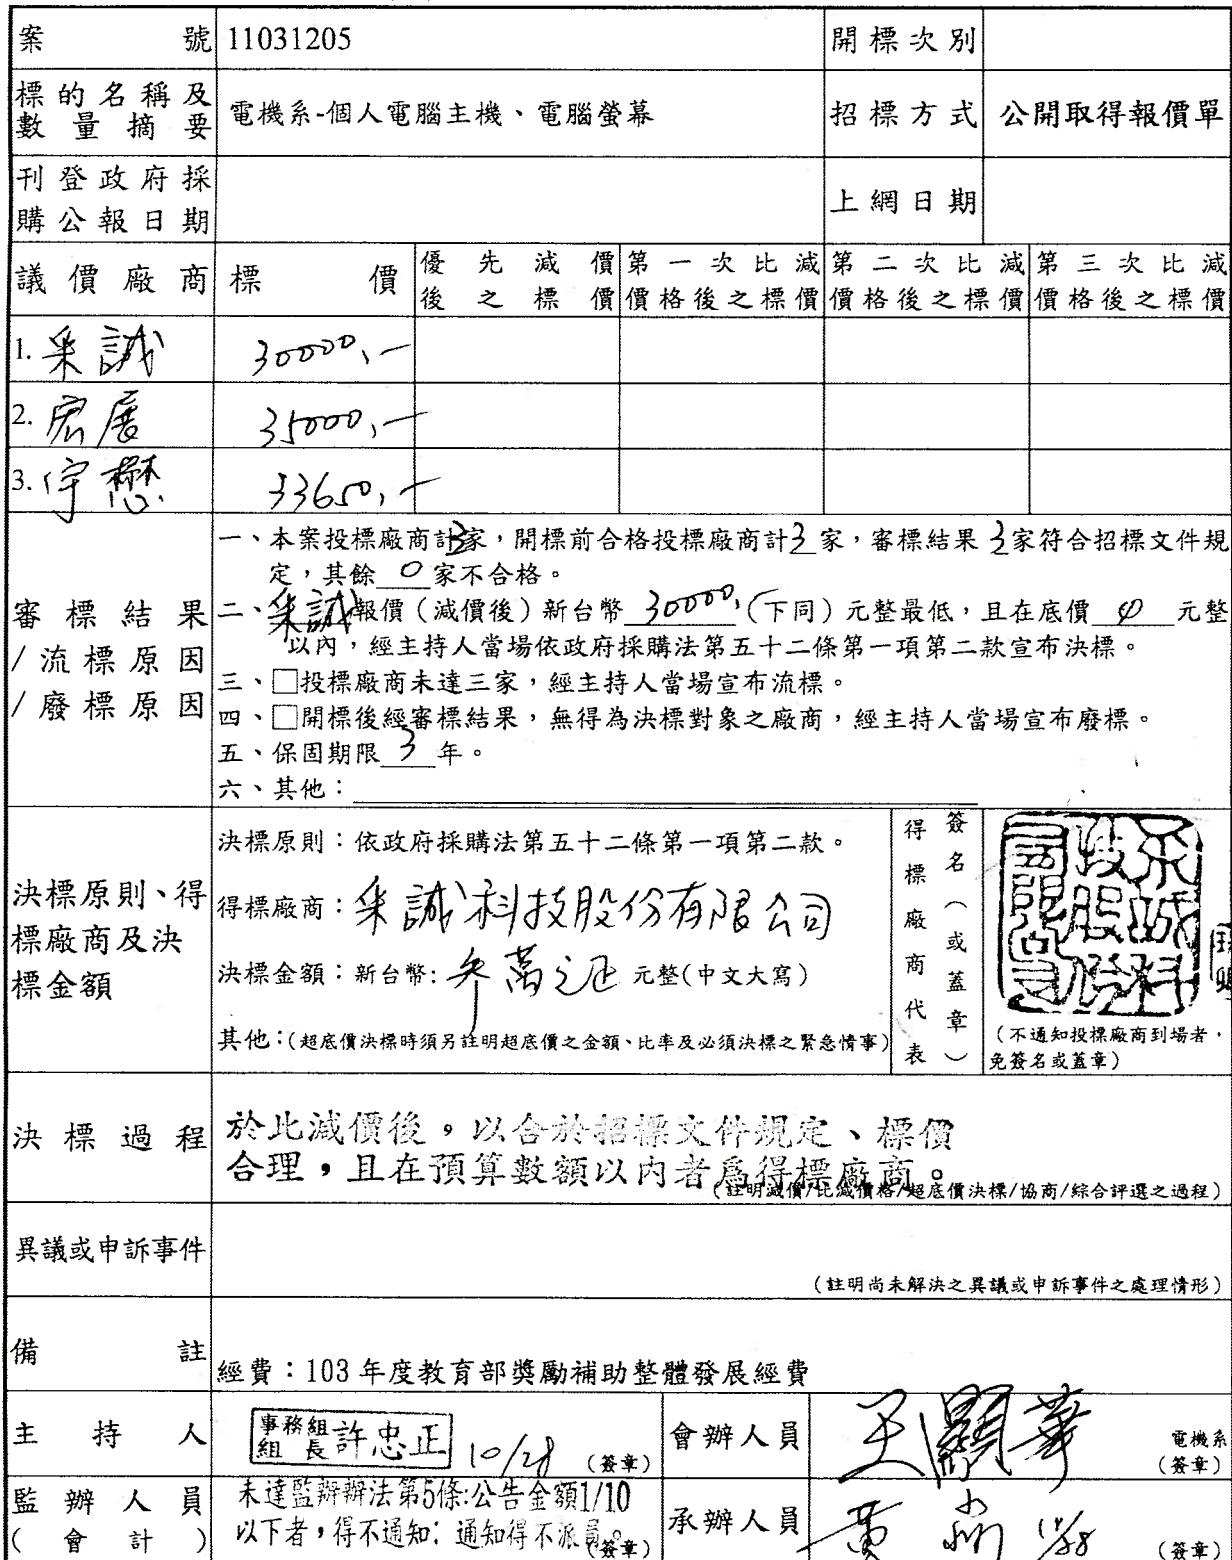 案號 11031205 開標次別
標的名稱及數量摘要 電機系-個人電腦主機、電腦螢幕 招標方式 公開取得報價單
刊登政府採購公報日期 上網日期
議價廠商 標價 優先減價後之標價 第一次比減價格後之標價 第二次比減價格後之標價 第三次比減價格後之標價
1. 采誠 30000,-
2. 宏展 35000,-
3. 宇懋 33650,-
審標結果/流標原因/廢標原因
一、本案投標廠商計3家,開標前合格投標廠商計3家,審標結果3家符合招標文件規
定,其餘0家不合格。
二、采誠報價(減價後)新台幣30000,(下同)元整最低,且在底價 元整
以內,經主持人當場依政府採購法第五十二條第一項第二款宣布決標。
三、□投標廠商未達三家,經主持人當場宣布流標。
四、□開標後經審標結果,無得為決標對象之廠商,經主持人當場宣布廢標。
五、保固期限3年。
六、其他:
決標原則、得標廠商及決標金額
決標原則:依政府採購法第五十二條第一項第二款。
得標廠商:采誠科技股份有限公司
決標金額:新台幣: 元整(中文大寫)
其他:(超底價決標時須另註明超底價之金額、比率及必須決標之緊急情事)
得標廠商代表
簽名(或蓋章)
采誠科技股份有限公司
(不通知投標廠商到場者,
免簽名或蓋章)
決標過程
於比減價後,以合於招標文件規定、標價
合理,且在預算數額以內者為得標廠商。
(註明減價/比減價格/超底價決標/協商/綜合評選之過程)
異議或申訴事件
(註明尚未解決之異議或申訴事件之處理情形)
備註 經費:103年度教育部獎勵補助整體發展經費
主持人 事務組組長 許忠正 10/28 (簽章) 會辦人員 王顯華 電機系(簽章)
監辦人員(會計)
未達監辦辦法第5條:公告金額1/10
以下者,得不通知;通知得不派員。(簽章)
承辦人員 黃 10/28 (簽章)